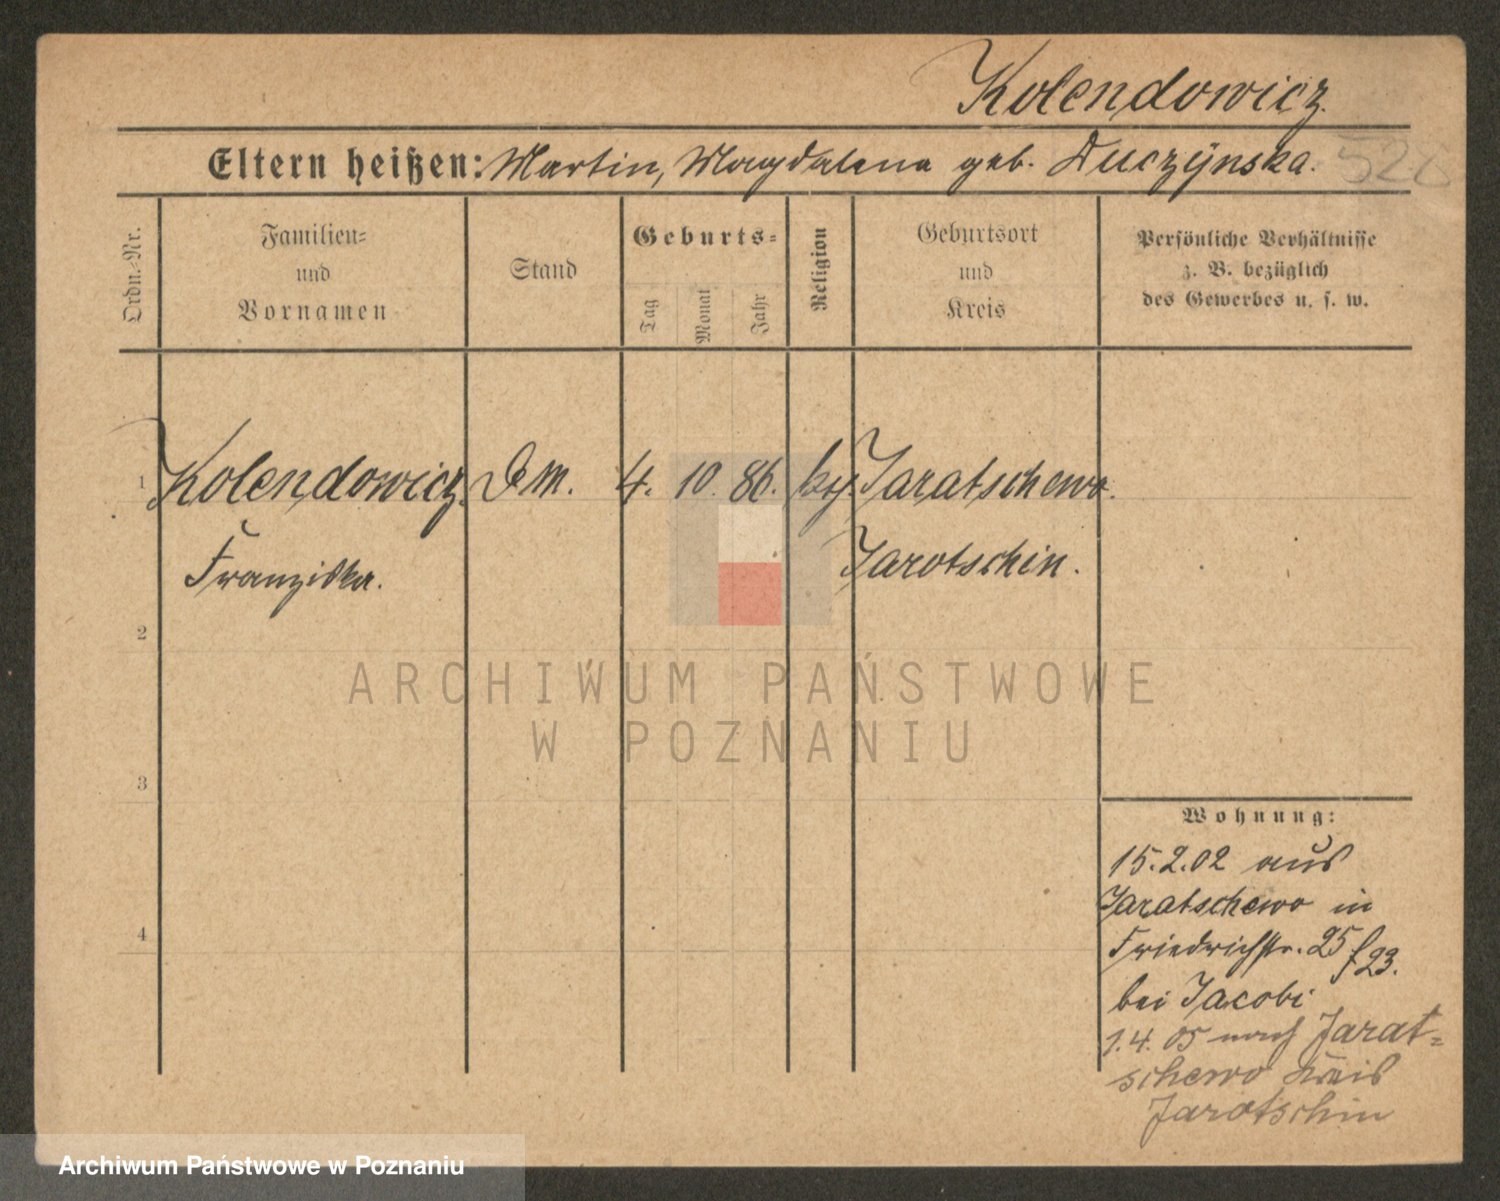 Kolendowicz.
Eltern heißen: Martin, Magdalena geb. Duczýnska.
Ordn.-Nr.
Familien-
und
Vornamen
Stand
Geburts-
Tag
Monat
Jahr
Religion
Geburtsort
und
Kreis
Persönliche Verhältnisse
z. B. bezüglich
des Gewerbes u. s. w.
1 Kolendowicz. 4. 10. 86. Jaratschewo.
Franziska. Jarotschin.
2
3
4
ARCHIWUM PAŃSTWOWE
W POZNANIU
Wohnung:
15.2.02 aus
Jaratschewo in
Friedrichstr. 25 f 23.
bei Jacobi
1.4.05 nach Jarat-
schewo Kreis
Jarotschin
Archiwum Państwowe w Poznaniu